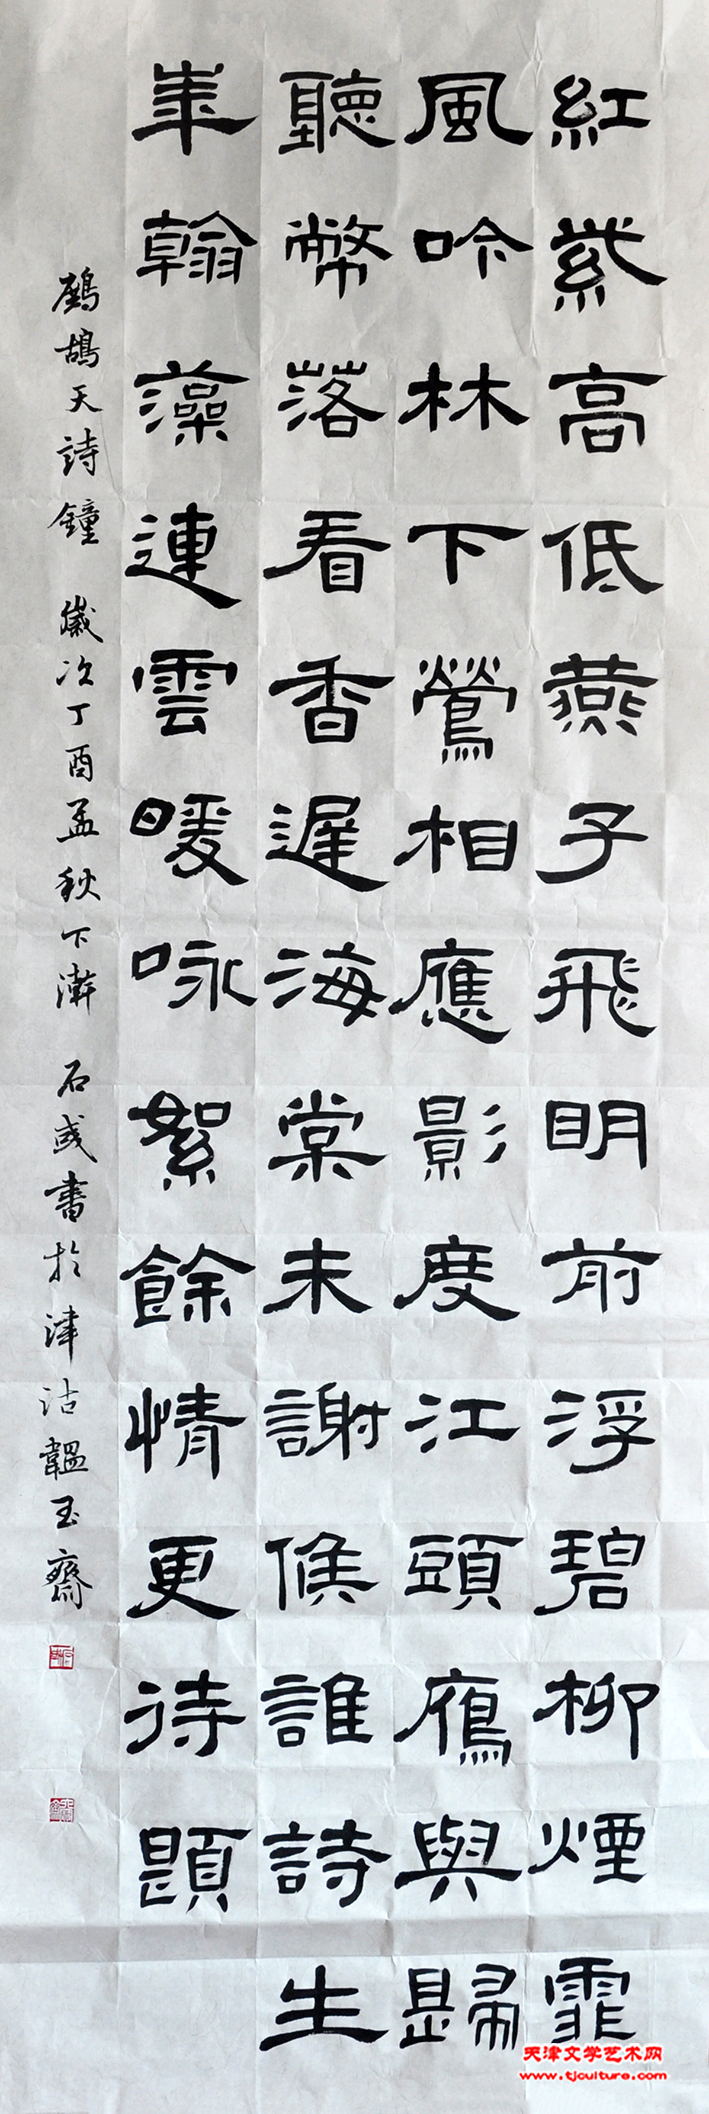 紅紫高低燕子飛明前浮碧柳煙霏
風吟林下鶯相應影度江頭鴈與歸
聽幣落看香遲海棠未謝候誰詩生
華翰藻連雲暖咏絮餘情更待題
鷓鴣天詩鐘 歲次丁酉孟秋下澣 石彧書於津沽韞玉齋
天津文学艺术网
www.tjculture.com